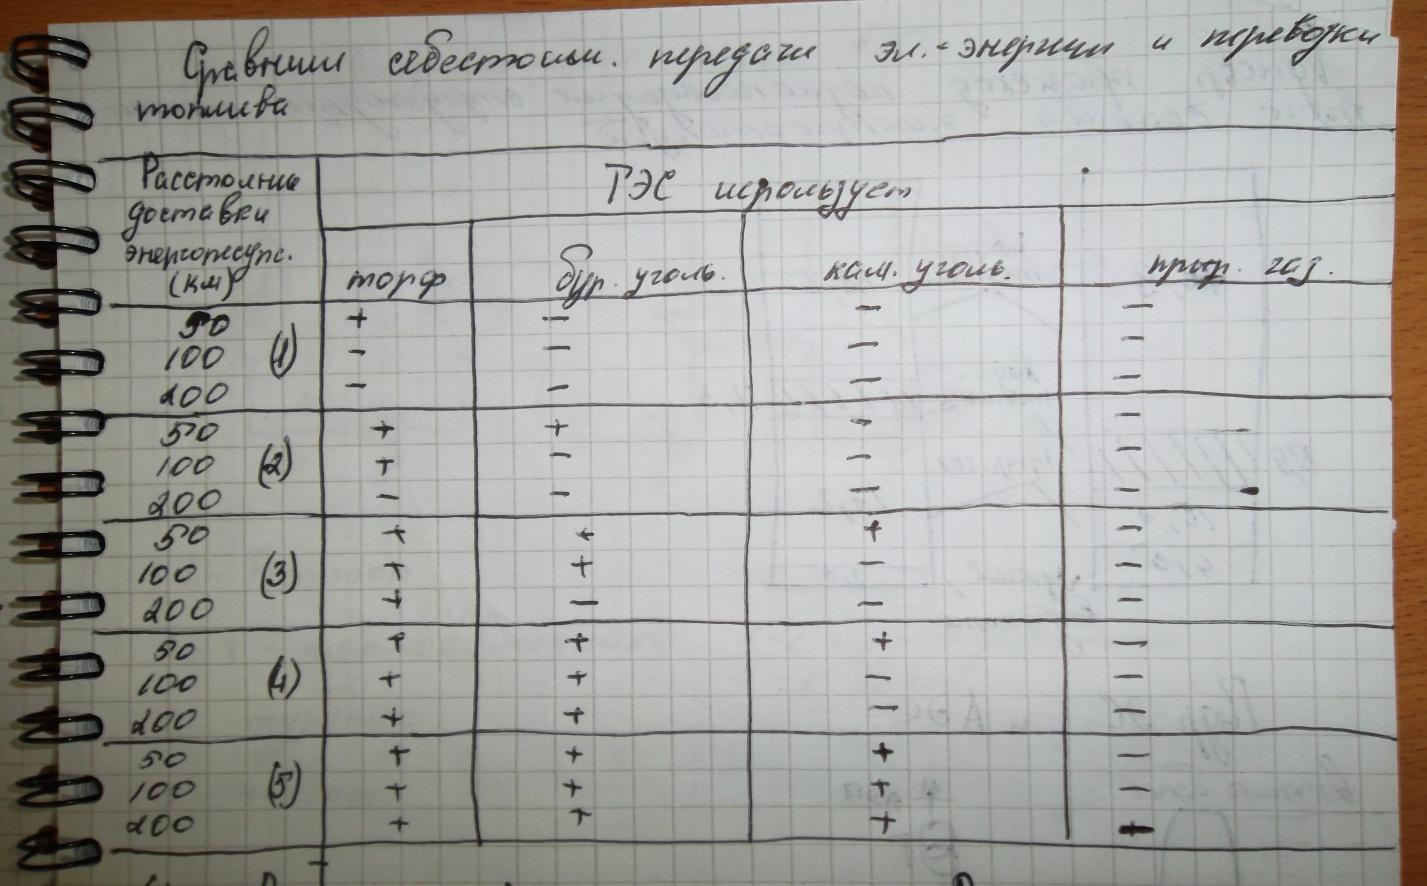 Сравним себестоим. передачи эл.-энергии и перевозки
топлива
Расстояние
доставки
энергоресурс.
(км)
ТЭС использует
торф бур. уголь. кам. уголь. прир. газ.
50 + - - -
100 (1) - - - -
200 - - - -
50 + + - -
100 (2) + - - -
200 - - - -
50 + + + -
100 (3) + + - -
200 + - - -
50 + + + -
100 (4) + + - -
200 + + - -
50 + + + -
100 (5) + + + -
200 + + + +